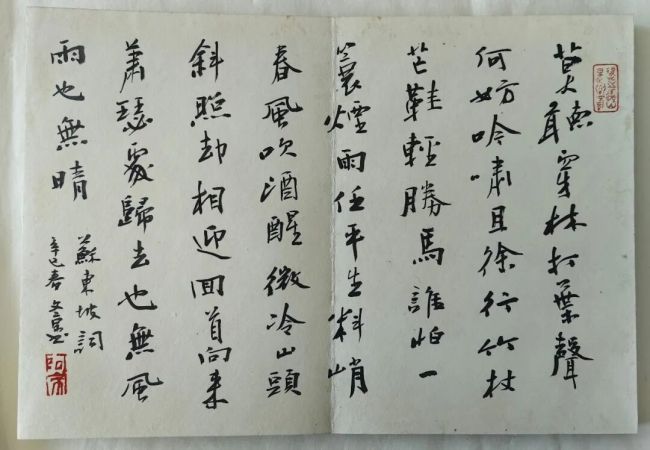 莫聽穿林打葉聲
何妨吟嘯且徐行竹杖
芒鞋輕勝馬誰怕一
蓑煙雨任平生料峭
春風吹酒醒微冷山頭
斜照却相迎回首向来
蕭瑟處歸去也無風
雨也無晴
蘇東坡詞
辛巳春